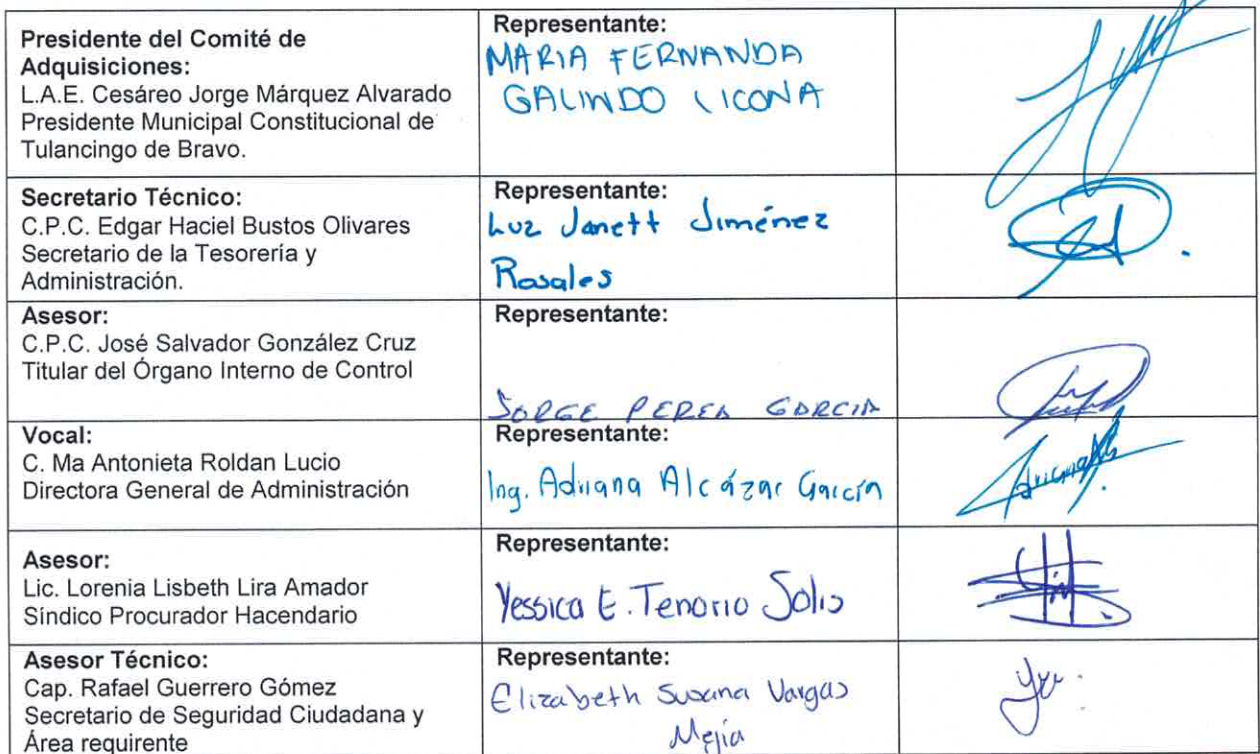 Presidente del Comité de
Adquisiciones:
L.A.E. Cesáreo Jorge Márquez Alvarado
Presidente Municipal Constitucional de
Tulancingo de Bravo.
Representante:
MARIA FERNANDA
GALINDO LICONA
Secretario Técnico:
C.P.C. Edgar Haciel Bustos Olivares
Secretario de la Tesorería y
Administración.
Representante:
Luz Janett Jiménez
Rosales
Asesor:
C.P.C. José Salvador González Cruz
Titular del Órgano Interno de Control
Representante:
JORGE PEREA GARCIA
Vocal:
C. Ma Antonieta Roldan Lucio
Directora General de Administración
Representante:
Ing. Adriana Alcázar García
Asesor:
Lic. Lorenia Lisbeth Lira Amador
Síndico Procurador Hacendario
Representante:
Yessica E. Tenorio Solis
Asesor Técnico:
Cap. Rafael Guerrero Gómez
Secretario de Seguridad Ciudadana y
Área requirente
Representante:
Elizabeth Susana Vargas
Mejía